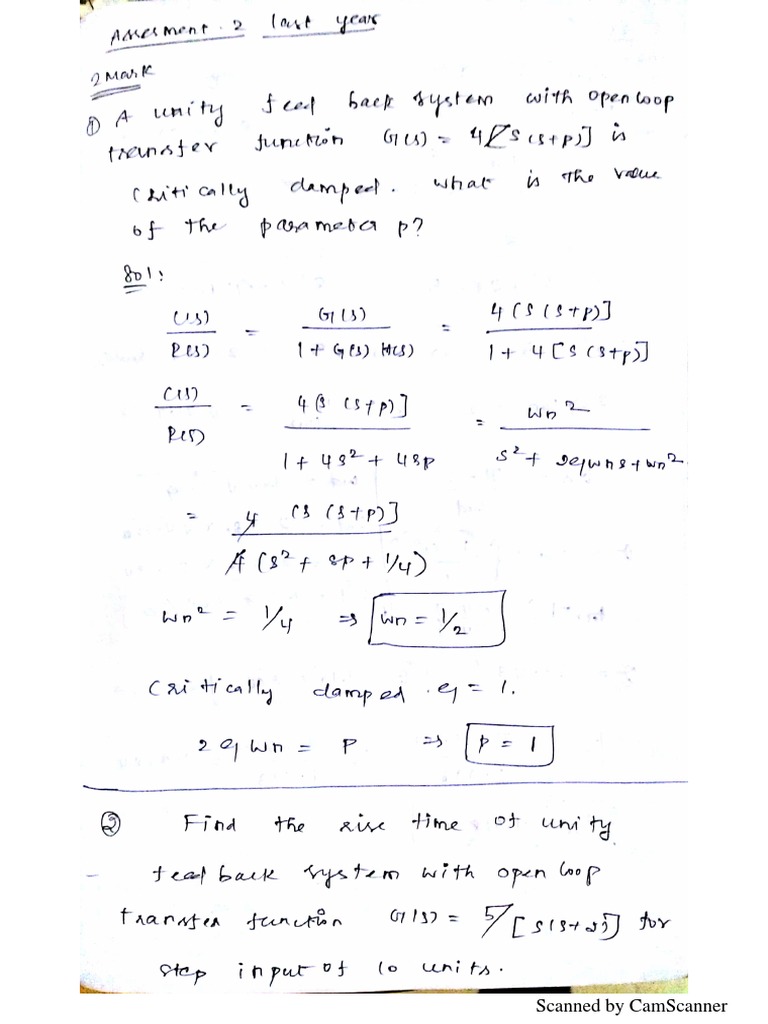 Assesment. 2 last year
2 Mark
① A unity feed back system with open loop
transfer function G(s) = 4/[s(s+p)] is
critically damped. what is the value
of the parameter p?
Sol:
C(s)/R(s) = G(s)/1 + G(s) H(s) = 4 [s (s+p)]/1 + 4 [s (s+p)]
C(s)/R(s) = 4 [s (s+p)]/1 + 4s² + 4sp = wn²/s² + 2ξwns + wn²
= 4 [s (s+p)]/4 (s² + sp + 1/4)
wn² = 1/4 ⇒ wn = 1/2
Critically damped ξ = 1.
2 ξ wn = p ⇒ p = 1
② Find the rise time of unity
feed back system with open loop
transfer function G(s) = 5/[s(s+2)] for
step input of 10 units.
Scanned by CamScanner